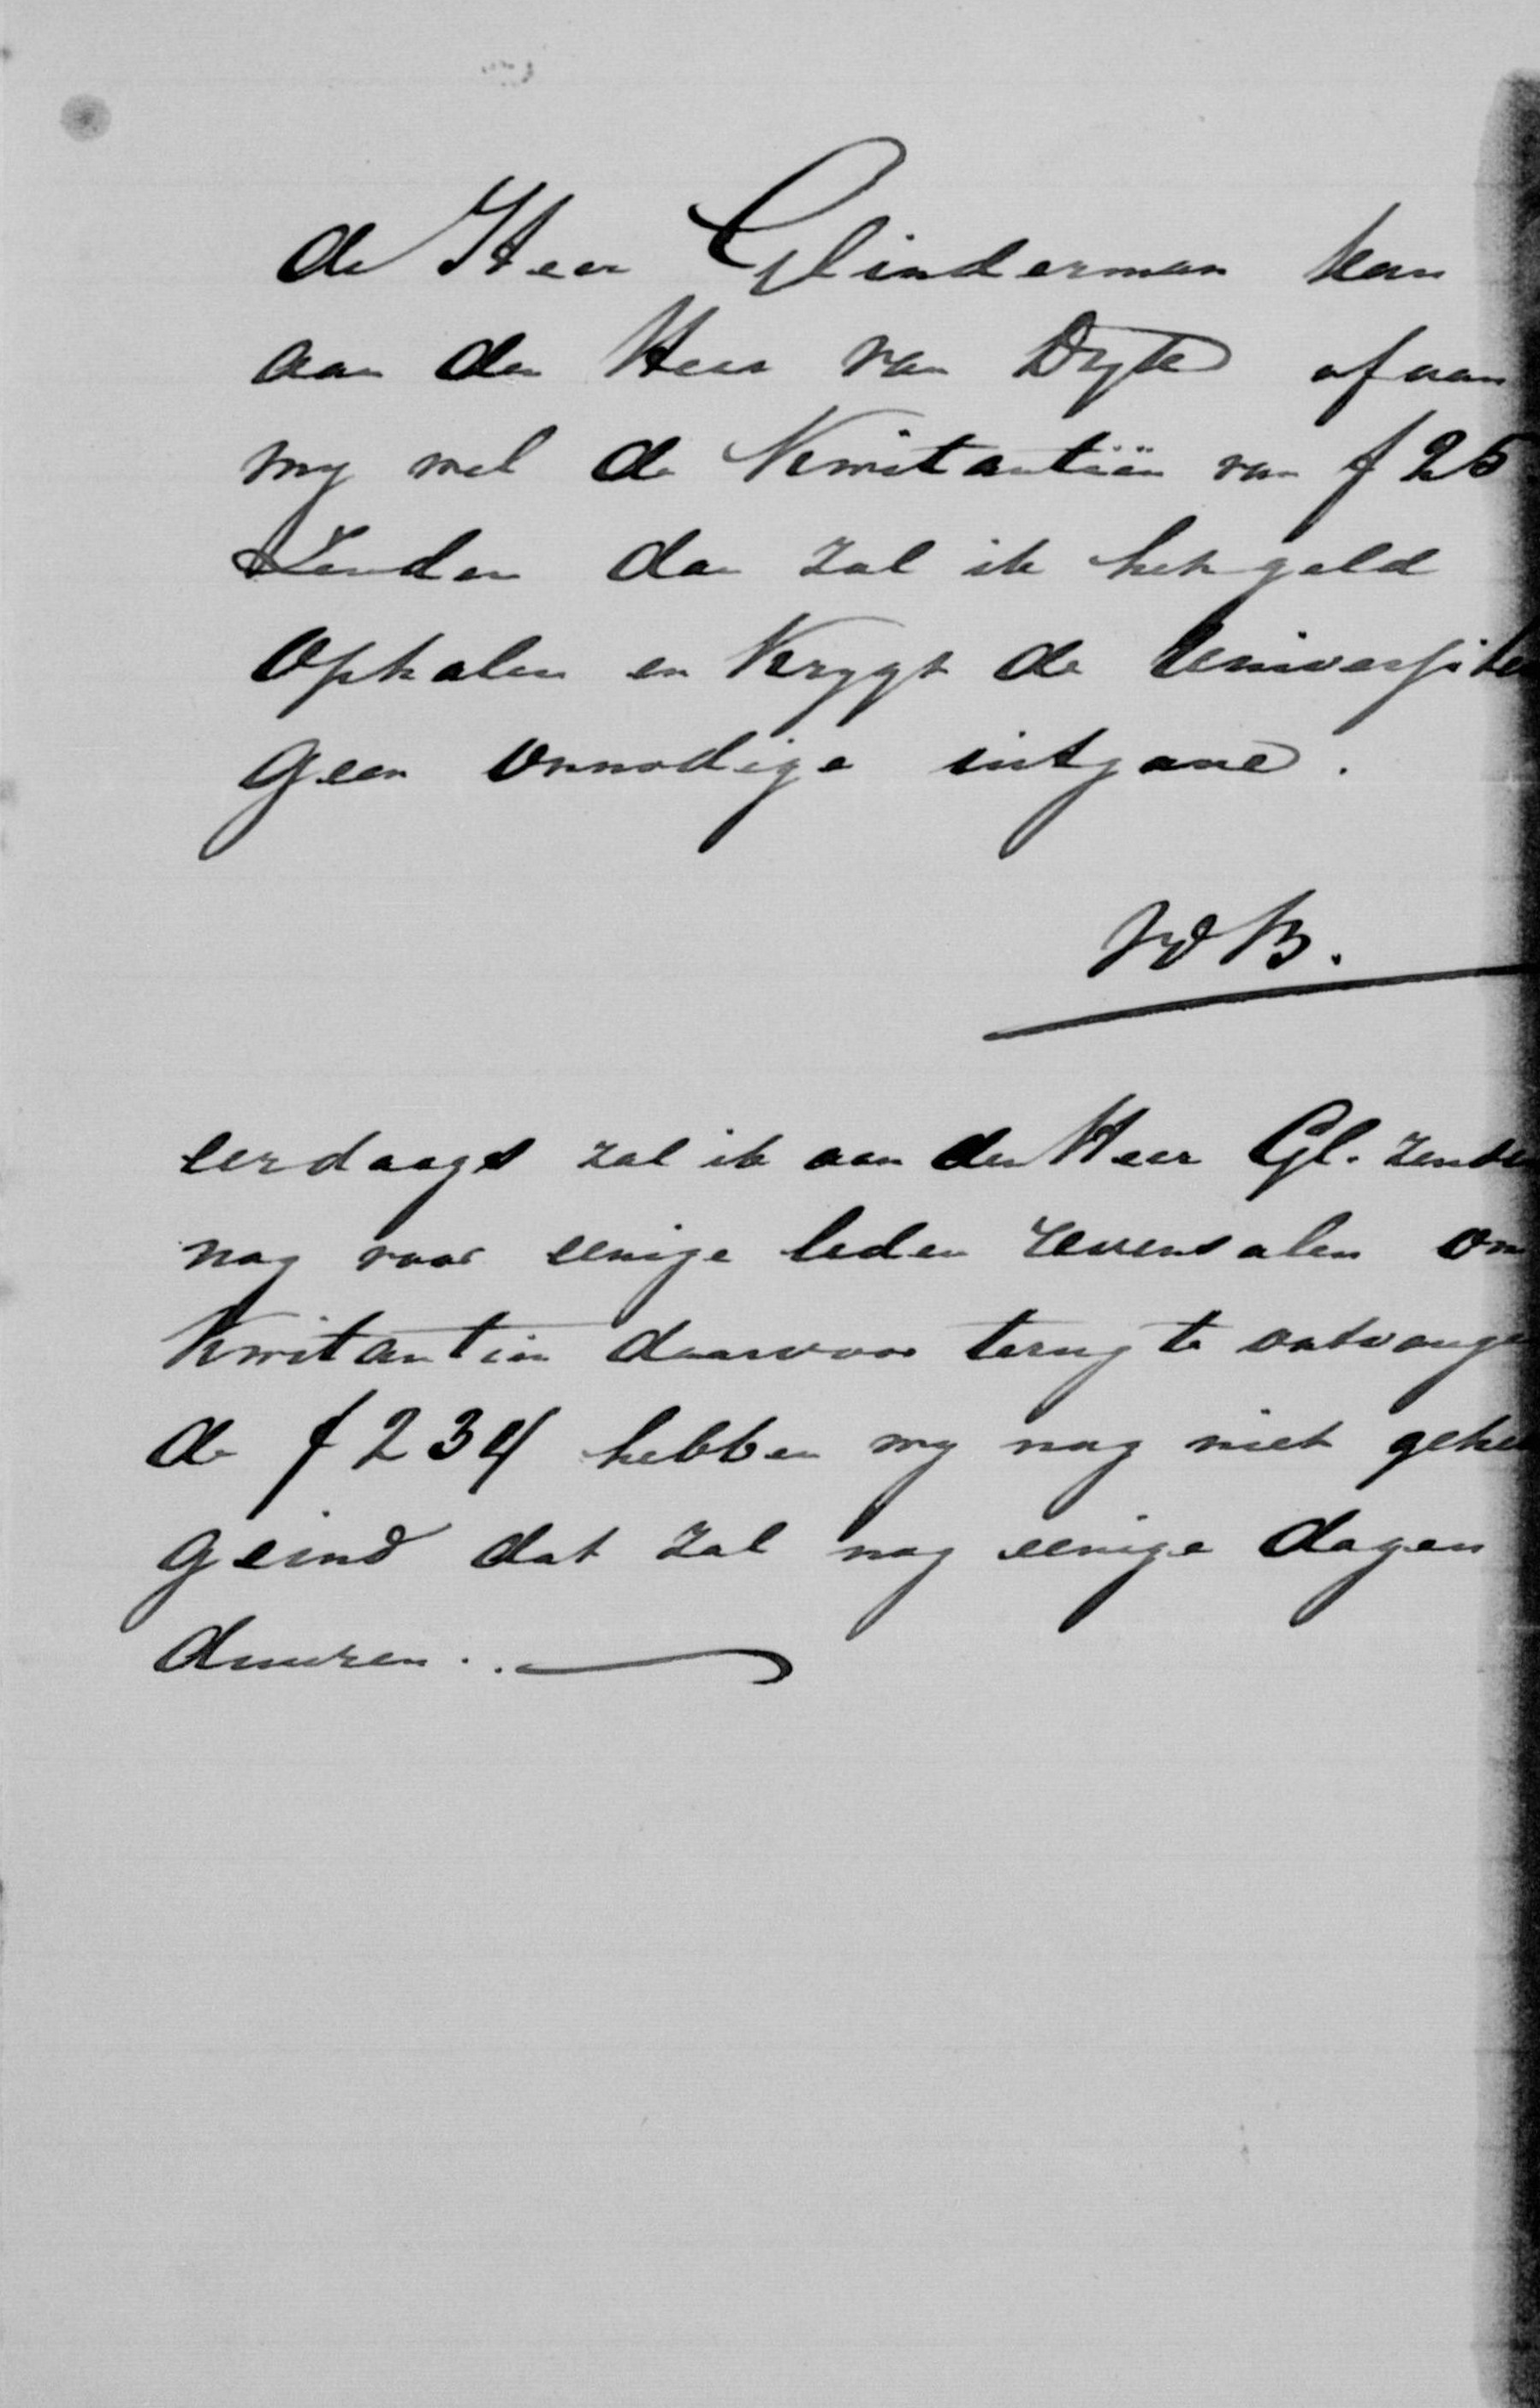 de Heer Glinderman kan
aan den Heer van Dyk of aan
my wel de Kwitantiën van f 25
Zenden dan zal ik het geld
Ophalen en Krygt de Universite
geen onnodige uitgave.
WB.
eerdaags zal ik aan den Heer Gl. zenden
nog voor eenige leden reversalen om
Kwitantien daarvoor terug te ontvange
de f 234 hebben wy nog niet gehe
geind dat zal nog eenige dagen
duuren..